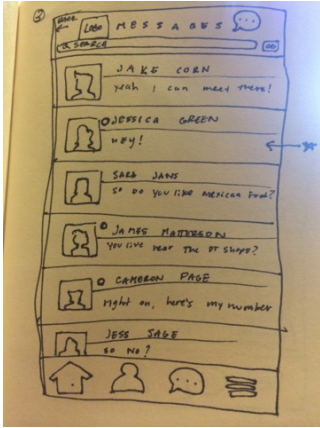 3
BACK LOGO MESSAGES
SEARCH GO
JAKE CORN
Yeah I can meet there!
JESSICA GREEN
Hey!
SARA JANS
So do you like mexican food?
JAMES MATTERSON
You live near the DT shops?
CAMERON PAGE
right on, here's my number
JESS SAGE
so no?